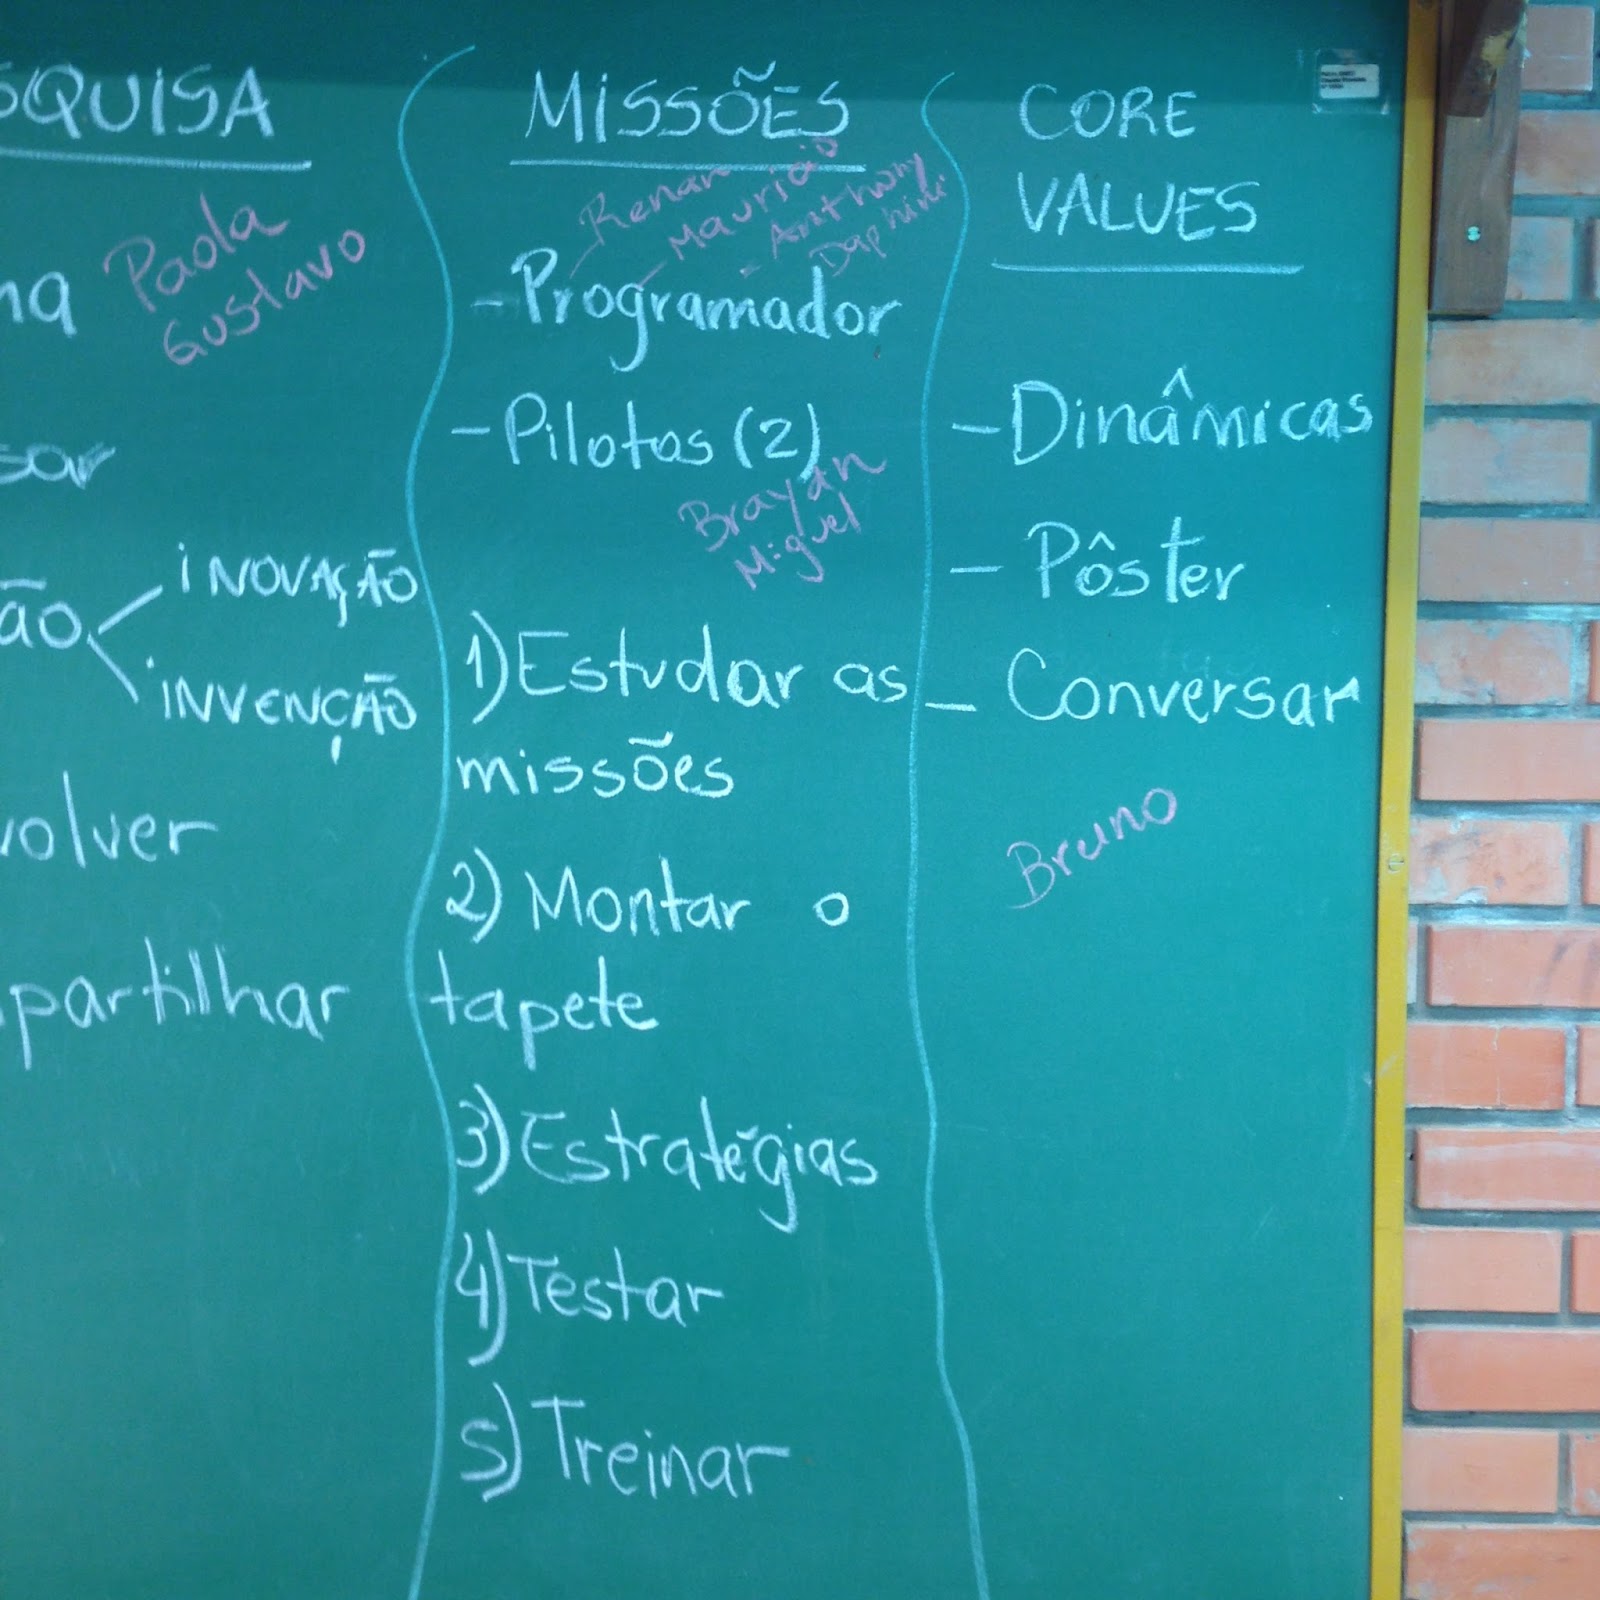 SQUISA
Paola
Gustavo
ma
sar
ão
iNOVAÇÃO
iNVENÇÃO
volver
partilhar
MiSSÕES
Renan
Mauricio
Anthony
Daphine
- Programador
- Pilotos (2)
Brayan
Miguel
1) Estudar as
missões
2) Montar o
tapete
3) Estratégias
4) Testar
5) Treinar
CORE
VALUES
- Dinâmicas
- Pôster
- Conversar
Bruno